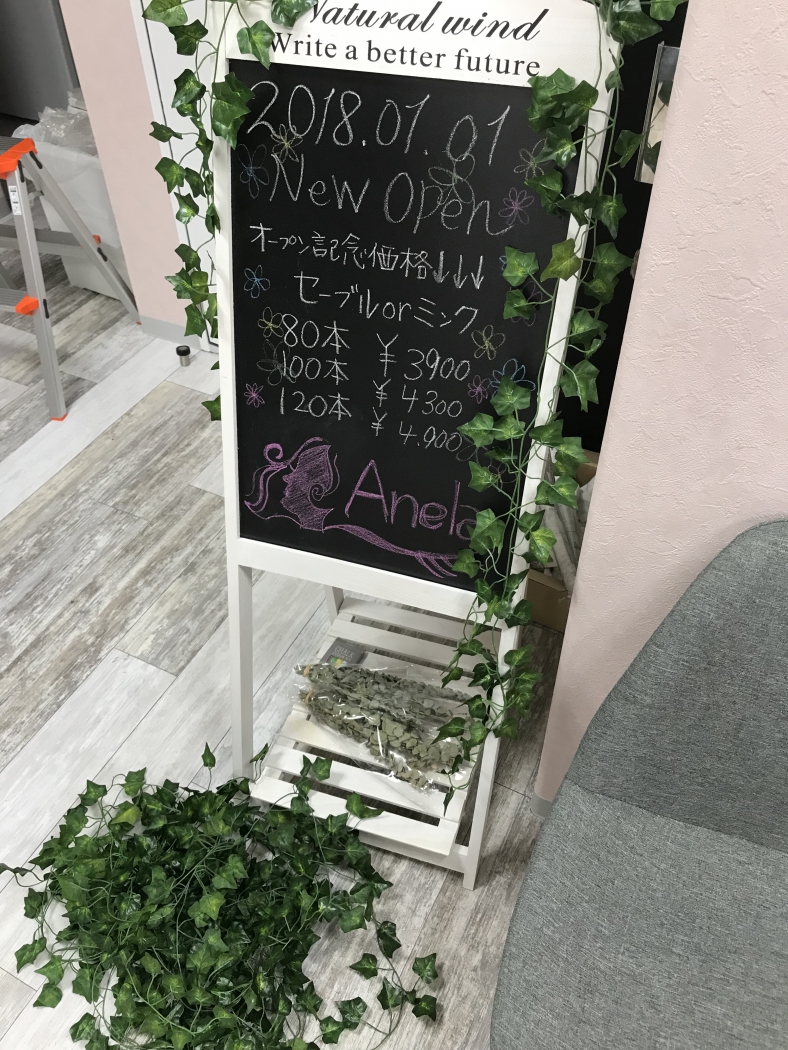 Natural wind
Write a better future
2018.01.01
New Open
オープン記念価格↓↓↓
セーブルorミンク
80本 ¥3900
100本 ¥4300
120本 ¥4.900
Anela